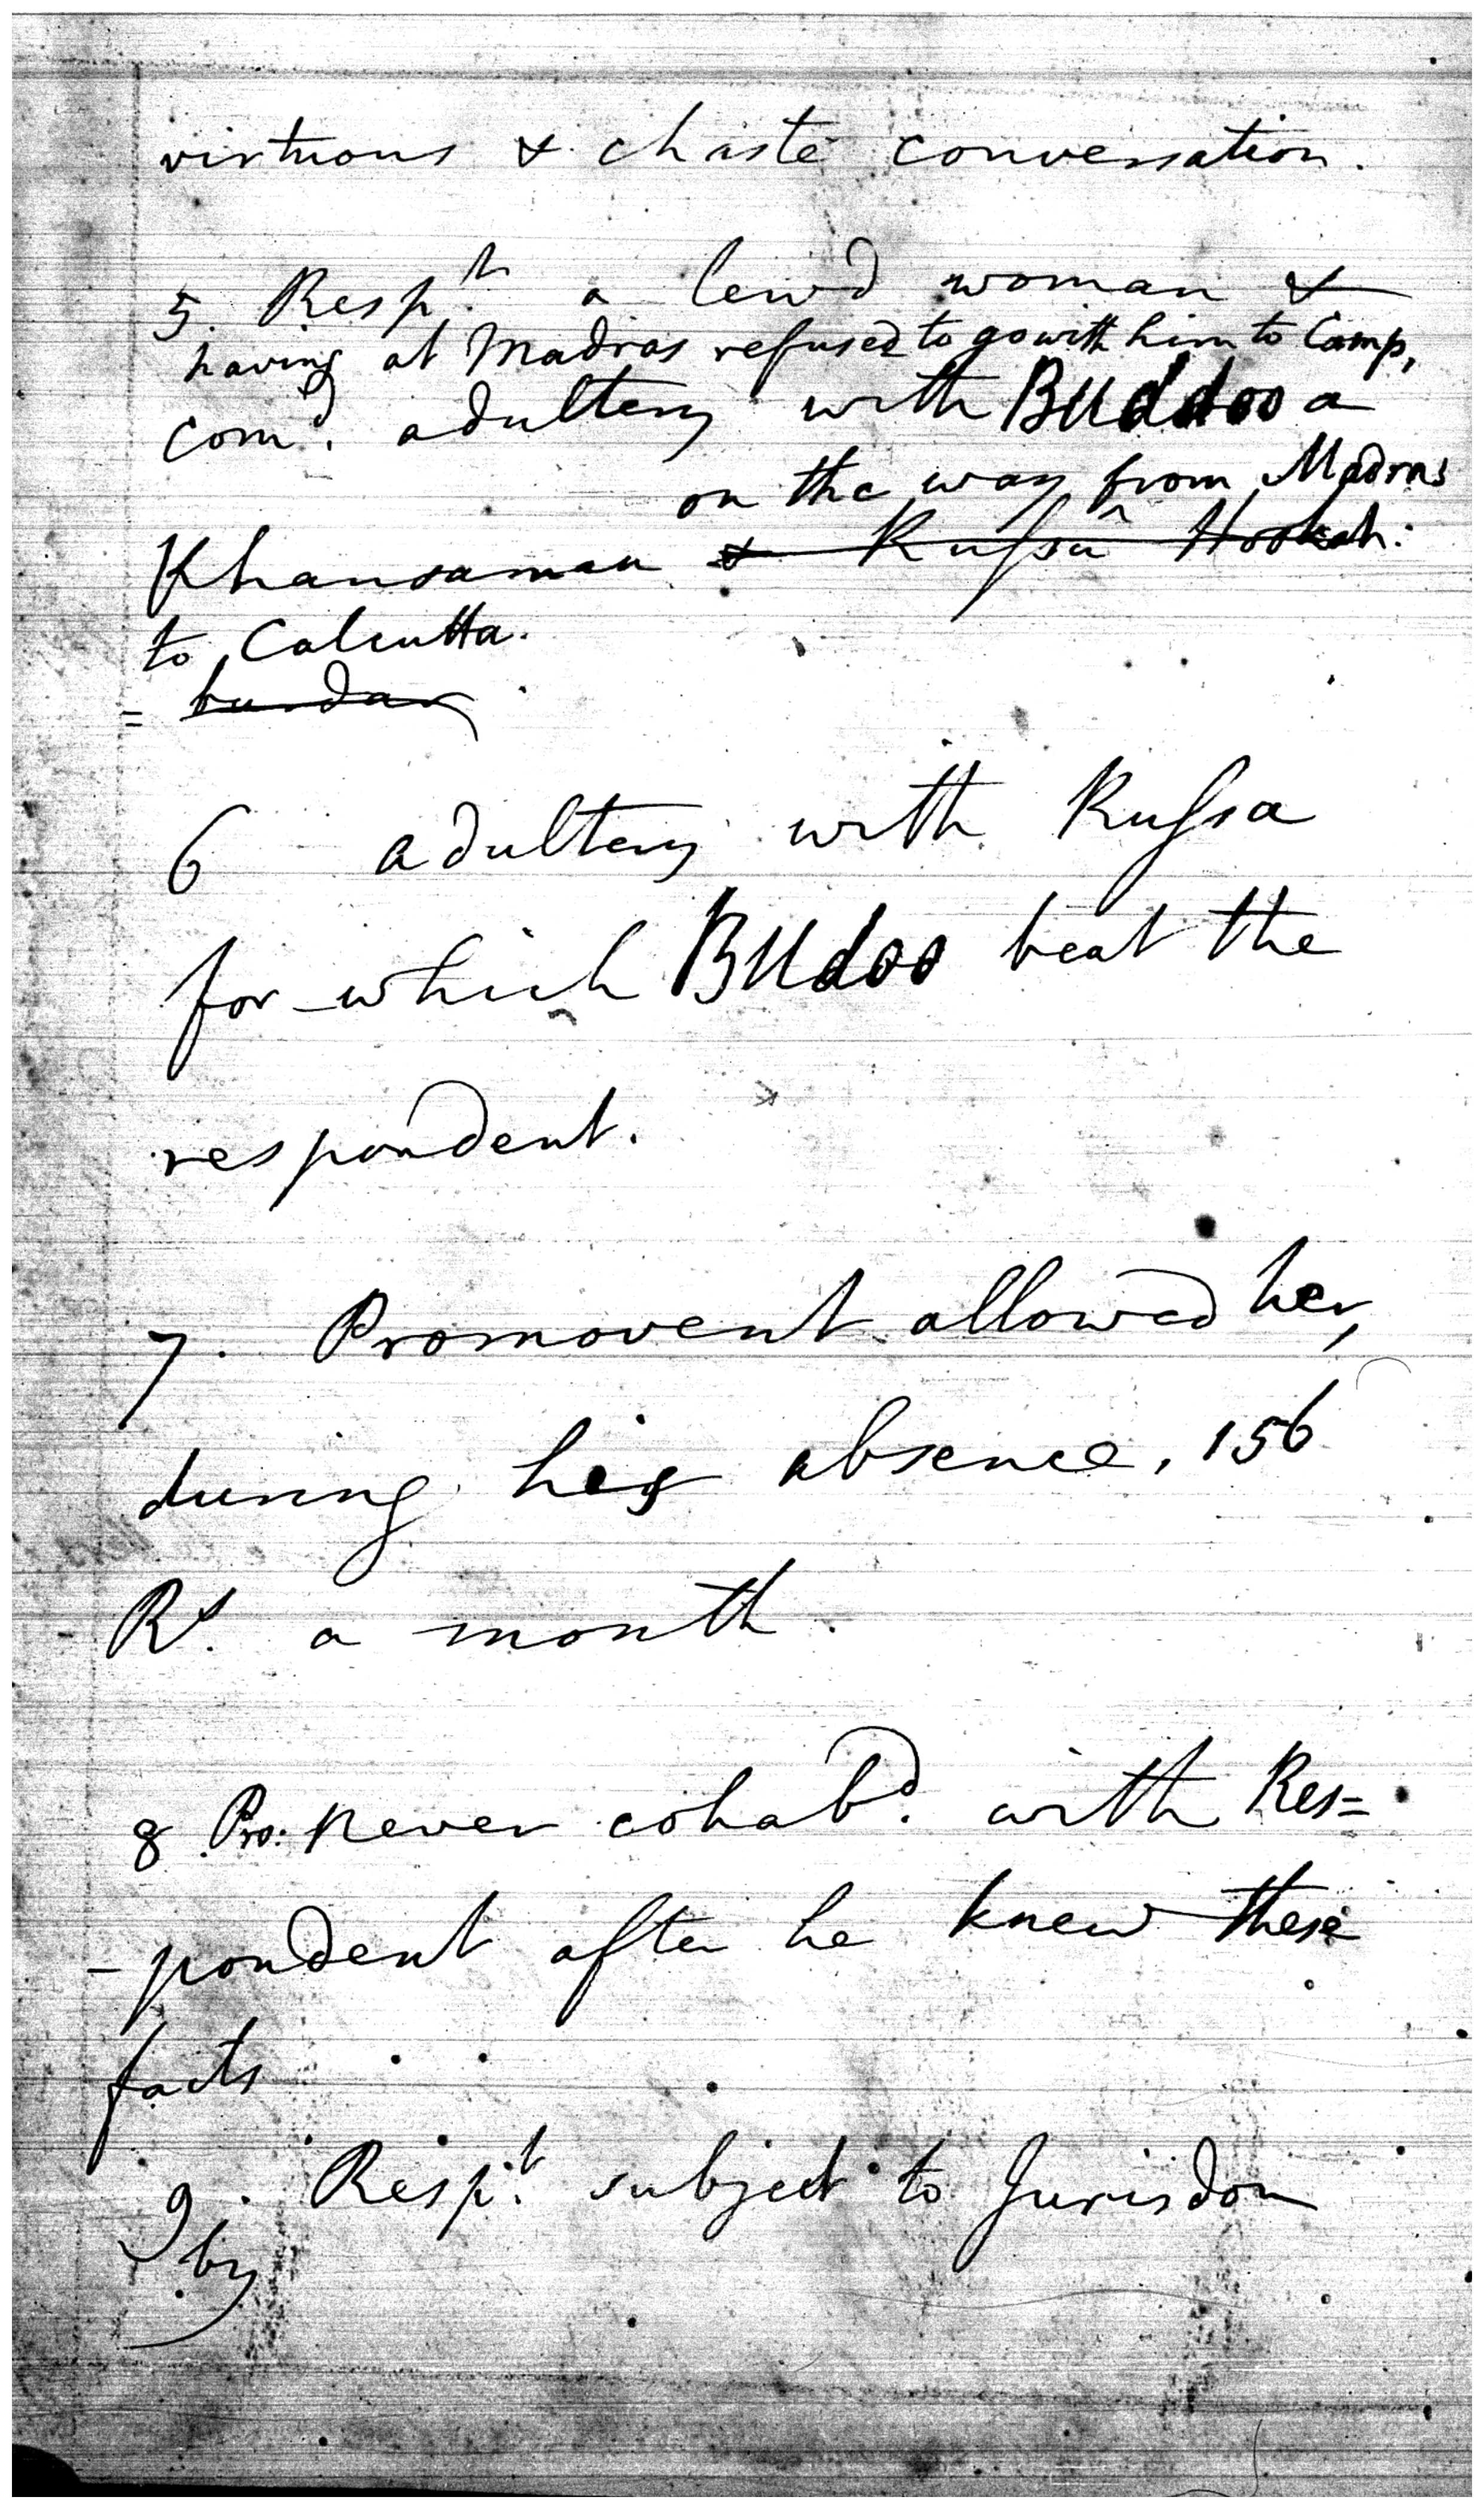 virtuous & chaste conversation.
5. Resp.t a lewd woman &
having at Madras refused to go with him to Camp,
com.d adultery with Buddoo a
on the way from Madras
Khansaman & Russa Hookah:
to Calcutta.
= burdar
6 adultery with Russa
for which Budoo beat the
respondent.
7. Promovent allowed her,
during his absence, 156
R.s a month.
8 Pro: never cohab.d with Res=
-pondent after he knew these
facts
9. Resp.t subject to Jurisdon
by